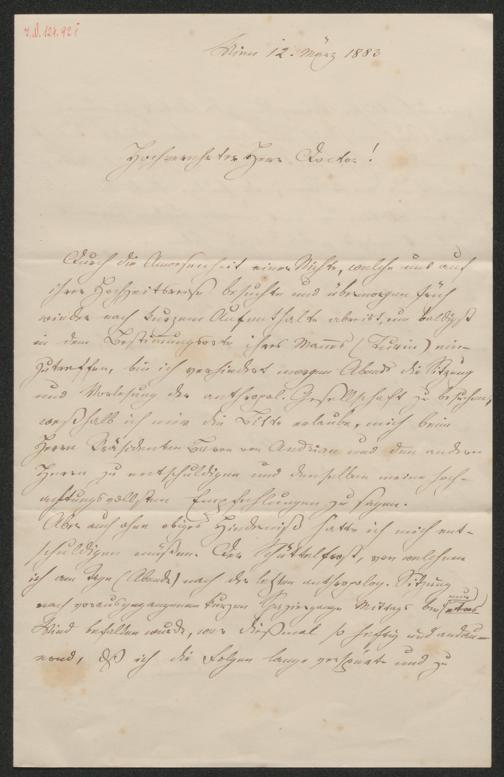 I.N. 124.921
Wien 12. März 1883
Hochverehrter Herr Doctor!
Durch die Anwesenheit einer Nichte, welche uns auf
ihrer Hochzeitsreise besuchte und übermorgen früh
wieder nach kurzem Aufenthalte abreist, um baldigst
in dem Bestimmungsorte ihres Mannes (Turin) ein-
zutreffen, bin ich verhindert morgen Abends die Sitzung
und Vorlesung der anthropol. Gesellschaft zu besuchen,
weßhalb ich mir die Bitte erlaube, mich beim
Herrn Präsidenten Baron von Andrian und den andern
Herren zu entschuldigen und denselben meine hoch-
achtungsvollsten Empfehlungen zu sagen.
Aber auch ohne obiges Hinderniß hätte ich mich ent-
schuldigen müssen. Der Schüttelfrost, von welchem
ich am Tage (Abends) nach der letzten anthropolog. Sitzung
nach vorausgegangenem kurzen Spaziergange Mittags bei
Wind befallen wurde, war dießmal so heftig und andau-
ernd, daß ich die Folgen lange verspürte und zu